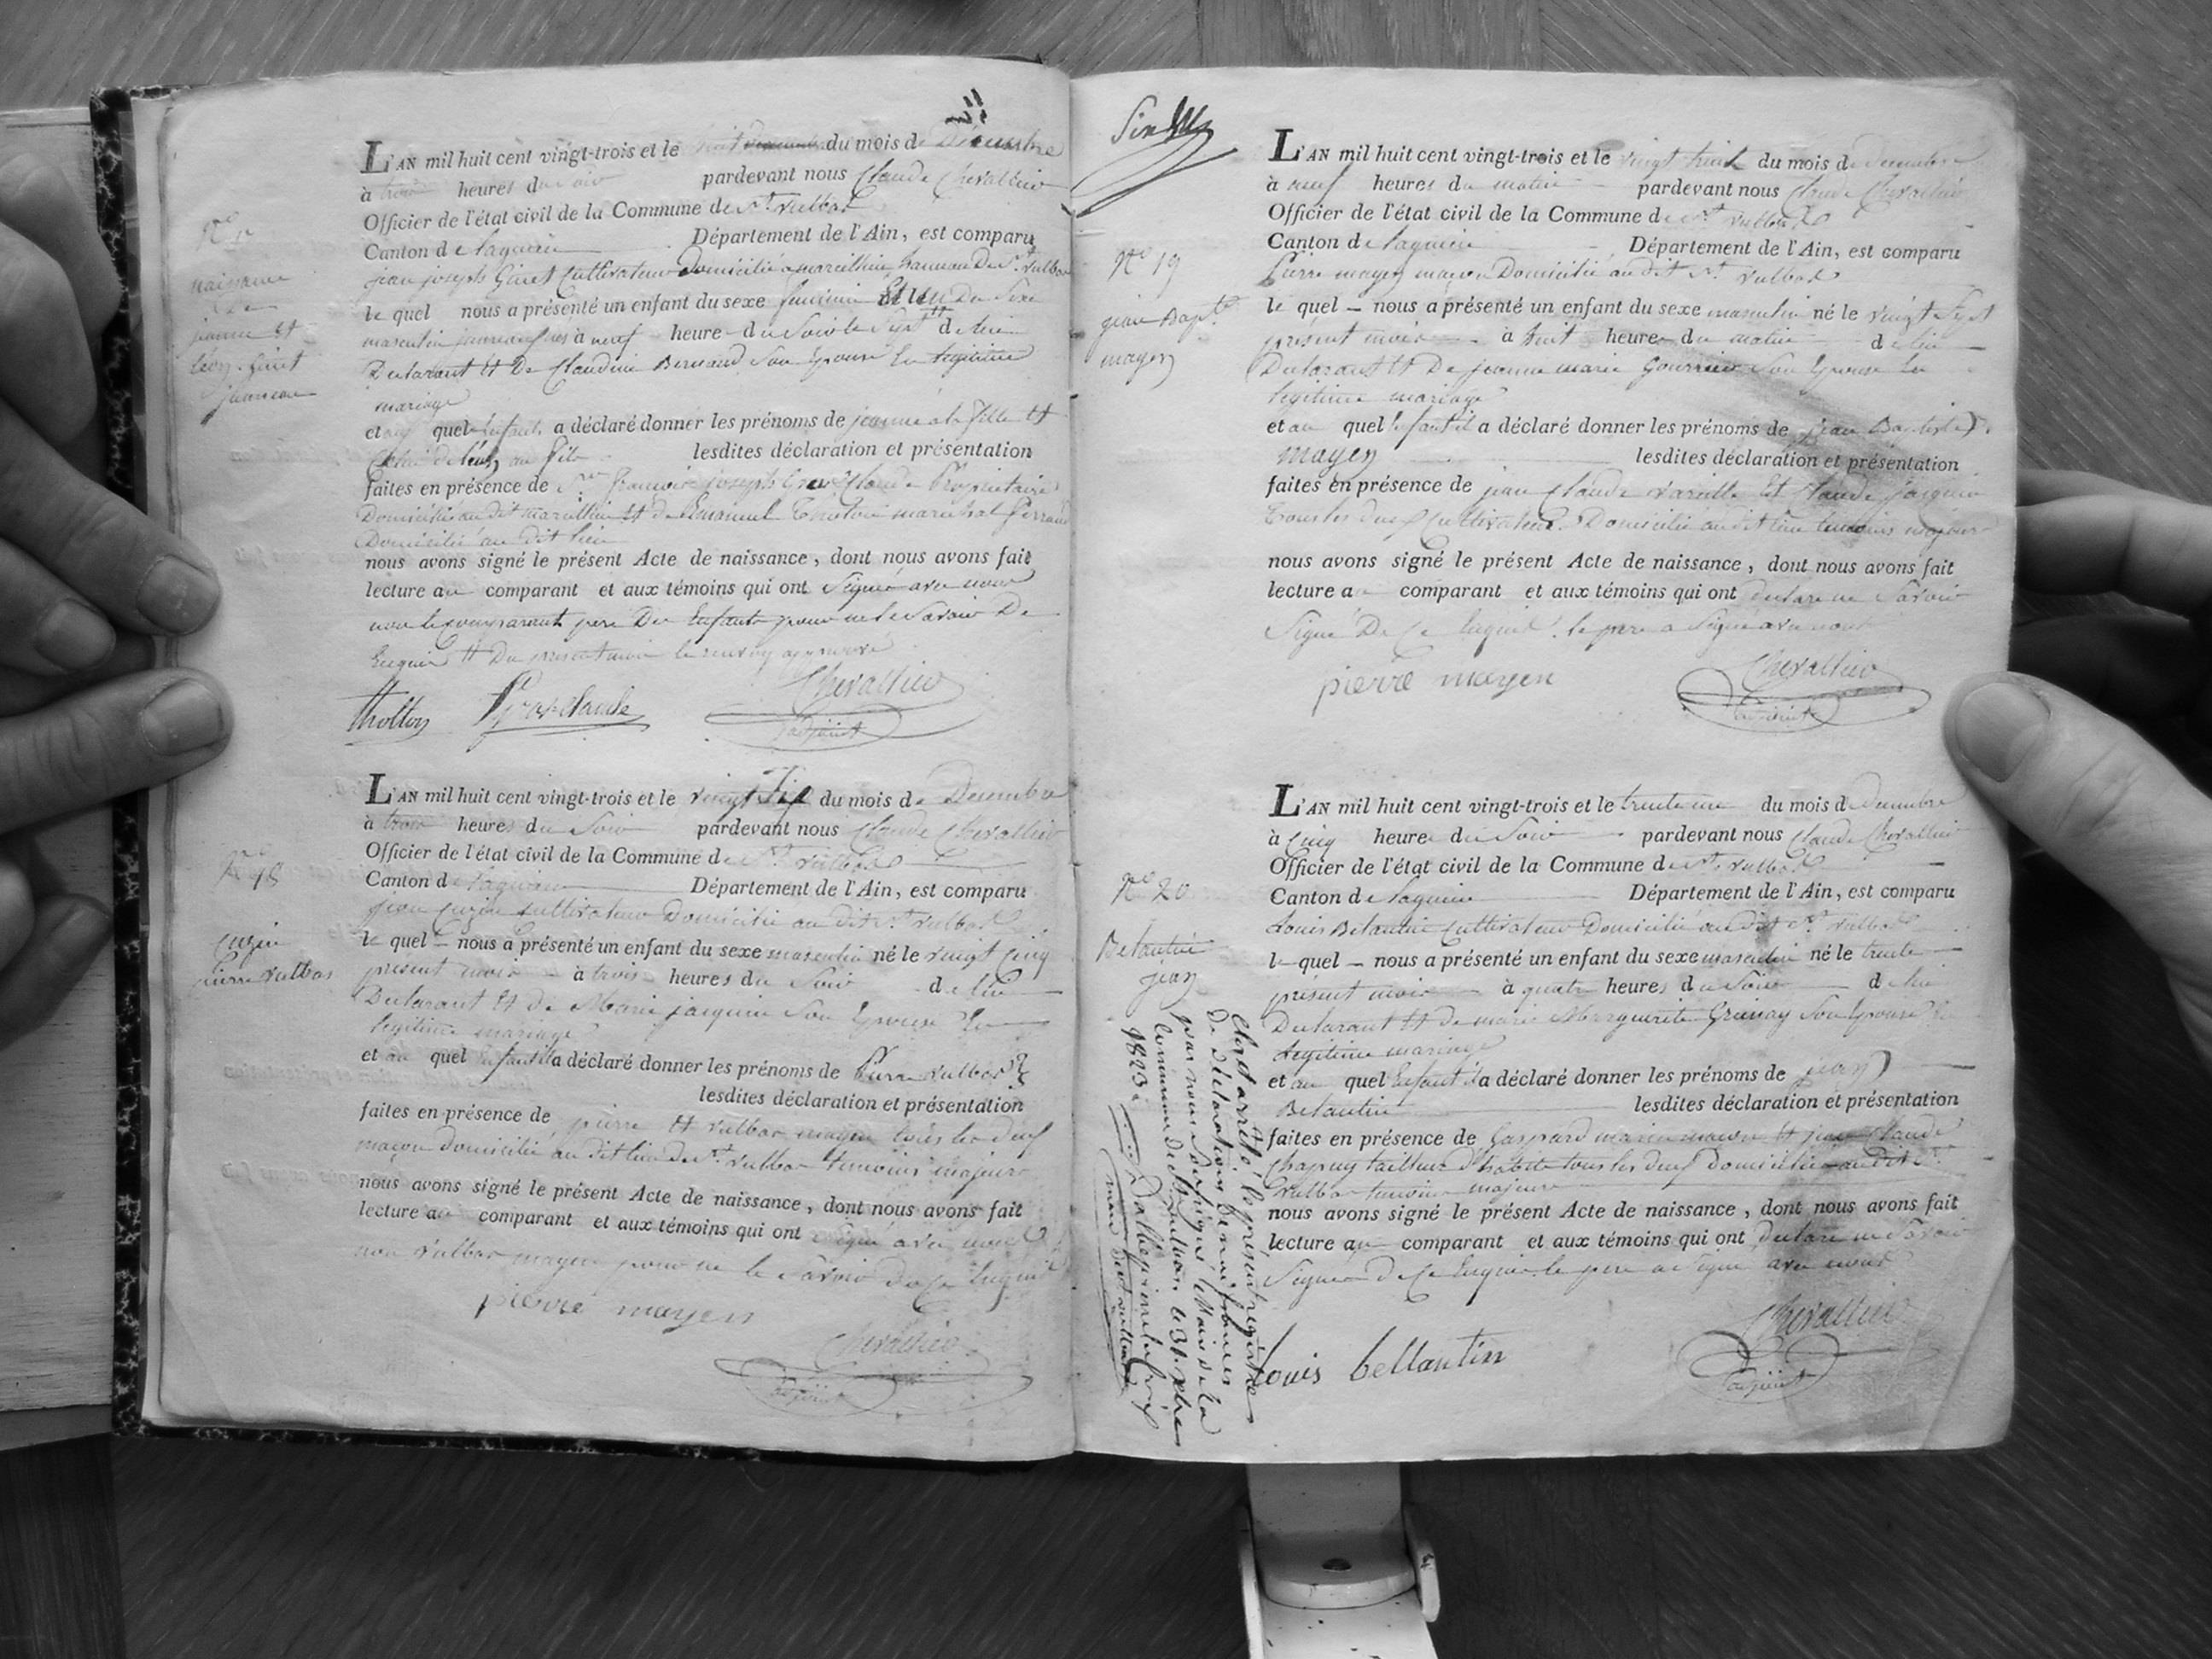 L'AN mil huit cent vingt-trois et le huit du mois de Décembre
à trois heures du soir pardevant nous Claude Chevallier
Officier de l'état civil de la Commune de St. Vulbas
Canton de Lagnieu Département de l'Ain, est comparu
jean joseph Ginet Cultivateur Domicilié a marcillieu hameau De St. Vulbas
le quel nous a présenté un enfant du sexe feminin Et un Du Sexe
masculin jumeaux nes à neuf heure du Soir le Sept de lui
Declarant Et De Claudine Bernard Son Epouse En legitime
mariage
et aux quels Enfants a déclaré donner les prénoms de jeanne a la fille Et
au fils lesdites déclaration et présentation
faites en présence de Sr. françois joseph Claude Propriétaire
Domicilié au dit marcillieu Et de Emanuel marechal ferrant
Domicilié au dit lieu
nous avons signé le présent Acte de naissance, dont nous avons fait
lecture au comparant et aux témoins qui ont Signé avec nous
non le comparant pere Des Enfants pour ne le Savoir De
Enquis Et Du present mois le renvoy approuvé
Chevallier
adjoint
naissance
de
jeanne Et
Ginet
jumeau
L'AN mil huit cent vingt-trois et le vingt Six du mois de Decembre
à trois heures du Soir pardevant nous Claude Chevallier
Officier de l'état civil de la Commune de St. Vulbas
Canton de Lagnieu Département de l'Ain, est comparu
jean Cuzin Cultivateur Domicilié au dit St. Vulbas
le quel nous a présenté un enfant du sexe masculin né le vingt Cinq
présent mois à trois heures du Soir de lui
Declarant Et de Marie jacquin Son Epouse En
legitime mariage
et au quel Enfant il a déclaré donner les prénoms de Pierre Vulbas
lesdites déclaration et présentation
faites en présence de pierre Et Vulbas mayen tous les deux
maçon domicilié au dit lieu de St. Vulbas temoins majeurs
nous avons signé le présent Acte de naissance, dont nous avons fait
lecture au comparant et aux témoins qui ont Signé avec nous
non Vulbas mayen pour ne le Savoir De Ce Enquis
pierre mayen
Chevallier
adjoint
No. 18
Cuzin
pierre Vulbas
L'AN mil huit cent vingt-trois et le vingt huit du mois de Decembre
à neuf heures du matin pardevant nous Claude Chevallier
Officier de l'état civil de la Commune de St. Vulbas
Canton de Lagnieu Département de l'Ain, est comparu
Pierre mayen maçon Domicilié au dit St. Vulbas
le quel nous a présenté un enfant du sexe masculin né le vingt Sept
présent mois à huit heures du matin de lui
Declarant Et De jeanne marie Son Epouse En
legitime mariage
et au quel Enfant il a déclaré donner les prénoms de jean Baptiste
mayen lesdites déclaration et présentation
faites en présence de jean Claude Et Claude jacquin
tous les deux Cultivateurs Domicilié au dit lieu temoins majeurs
nous avons signé le présent Acte de naissance, dont nous avons fait
lecture au comparant et aux témoins qui ont declaré ne Savoir
Signé De Ce Enquis. le pere a Signé avec nous
pierre mayen
Chevallier
adjoint
No. 19
jean Bapte.
mayen
L'AN mil huit cent vingt-trois et le trente un du mois de Decembre
à Cinq heures du Soir pardevant nous Claude Chevallier
Officier de l'état civil de la Commune de St. Vulbas
Canton de Lagnieu Département de l'Ain, est comparu
Louis Belantin Cultivateur Domicilié au dit St. Vulbas
le quel nous a présenté un enfant du sexe masculin né le trente
présent mois à quatre heures du Soir de lui
Declarant Et de marie Marguerite Son Epouse En
legitime mariage
et au quel Enfant il a déclaré donner les prénoms de jean
Belantin lesdites déclaration et présentation
faites en présence de Gaspard marin maçon Et jean Claude
Chapuy tailleur D'habits tous les deux Domicilié au dit St.
Vulbas temoins majeurs
nous avons signé le présent Acte de naissance, dont nous avons fait
lecture au comparant et aux témoins qui ont declaré ne Savoir
Signer De Ce Enquis. le pere a Signé avec nous
Louis bellantin
Chevallier
adjoint
No. 20
Belantin
jean
Clos et arrêté le présent registre
de déclaration de naissances
par nous soussigné Maire de la
Commune de St Vulbas le 31 Xbre
1823